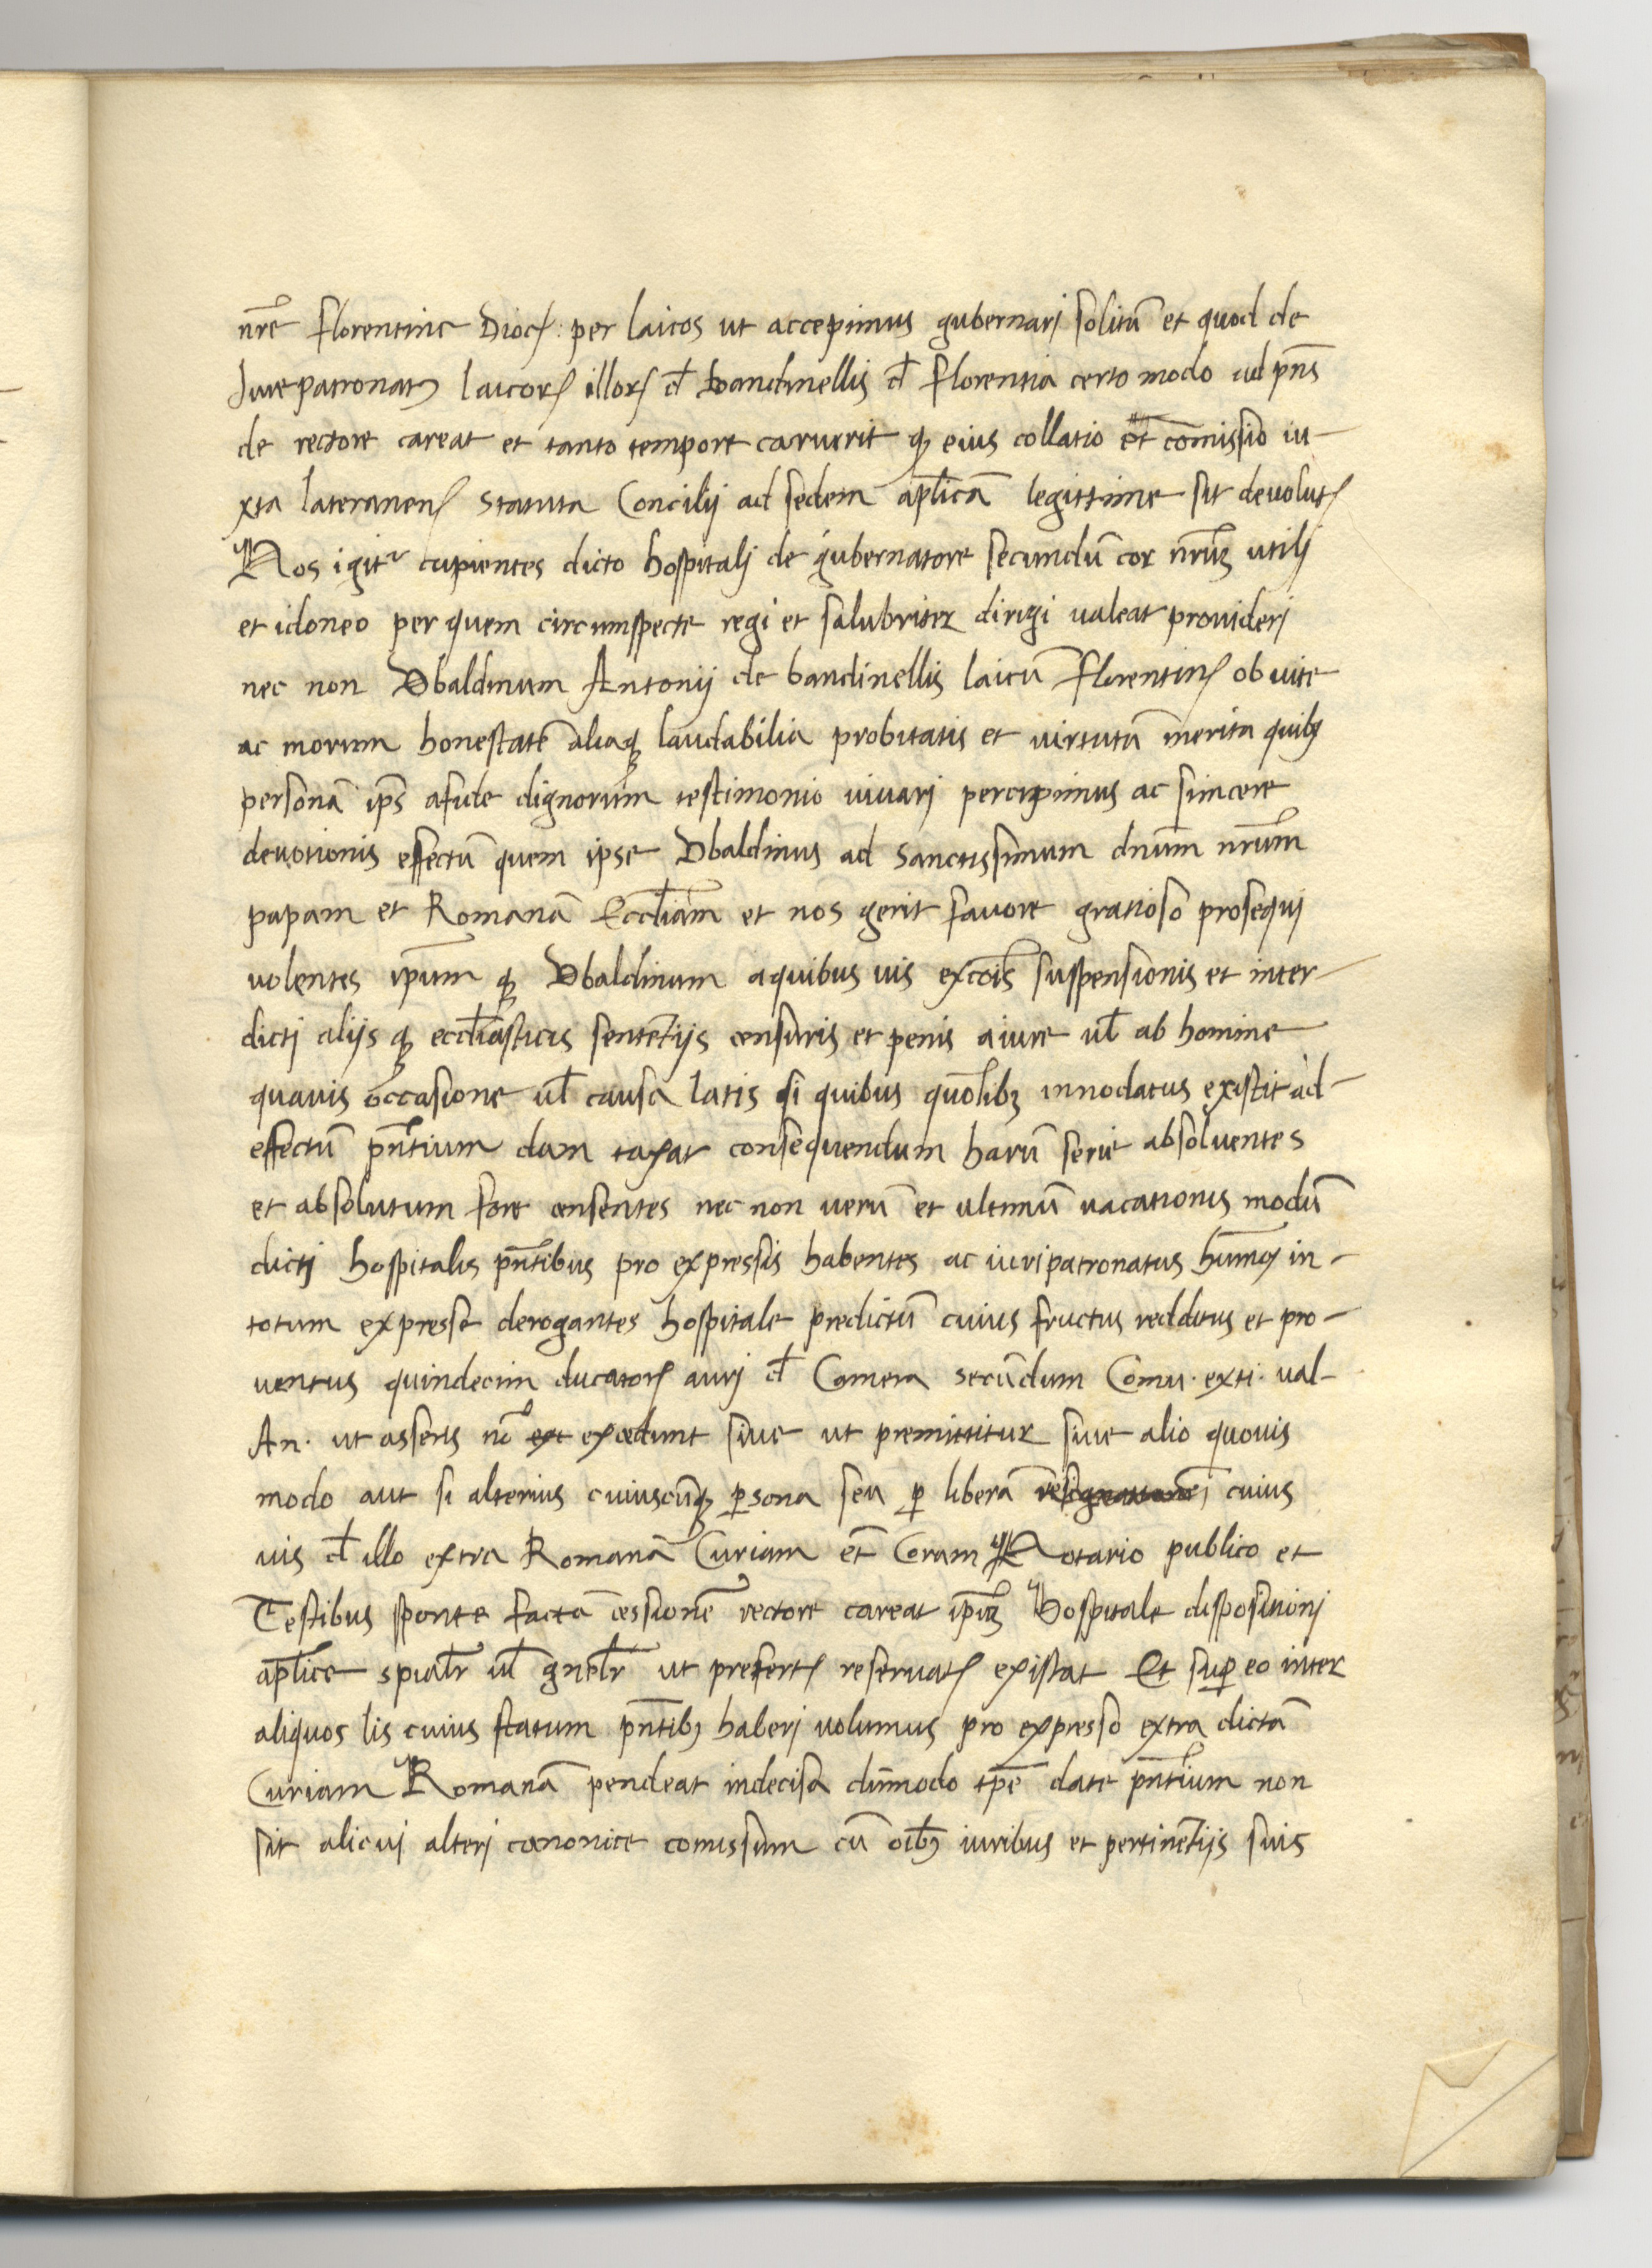 nr̄e florentine Dioc̄ : per laicos ut accepimus gubernarj solitū et quod de
Jurepatronatꝰ laicorꝝ illorꝝ đ bandinellis đ florentia certo modo ad pn̄s
de rectore careat et tanto tempore caruerit qꝫ eius collatio et comissio iu-
xta lateranen̄ statuta Concilij ad sedem ap̄licā legittime sit deuolut̄
Nos igitʳ cupientes dicto hospitalj de gubernatore secundū cor nr̄uꝫ utilj
et idoneo per quem circumspecte regi et salubriter dirigi ualeat prouiderj
nec non Vbaldinum Antonij de bandinellis laicū florentin̄ ob uite
ac morum honestatē aliaqꝫ laudabilia probitatis et uirtutū merita quibꝰ
personā ip̄s afide dignorum testimonio iuuarj percepimus ac sincere
deuotionis effectū quem ipse Vbaldinus ad sanctissimum dn̄um nr̄um
papam et Romanā Eccl̄iam et nos gerit fauore gratioso prosequj
uolentes ip̄um qꝫ Vbaldinum aquibus uis excōis suspensionis et inter-
dictj alijs qꝫ eccl̄iasticis sentētijs censuris et penis aiure ul̄ ab homine
quauis occasione ul̄ causa latis si quibus quōlibꝫ innodatus existit ad-
effectū pn̄tium dam taxat consequendum harū serie absoluentes
et absolutum fore censentes nec non uerū et ultimū uacationis modū
dictj hospitalis pn̄tibus pro expressis habentes ac iuripatronatus hūmoꝰ in-
totum expresse derogantes hospitale predictū cuius fructus redditus et pro-
uentus quindecim ducatorꝝ aurj đ Camera secūdum Comu. exti. ual-
An. ut asseris nō ext excedunt siue ut premittitur siue alio quouis
modo aut si alterius cuiuscūqꝫ ꝑsona seu ꝑ liberā resignationēi cuius
uis đ illo extra Romanā Curiam et̄ Coram Notario publico et
Testibus sponte facta cessionē rectore careat ip̄uꝫ Hospitale dispositionj
ap̄lice spialr̄ ul̄ gn̄elr̄ ut prefert̄ reseruat̄ existat Et suꝑ eo inter
aliquos lis cuius statum pn̄tibꝰ haberj uolumus pro expresso extra dictā
Curiam Romanā pendeat indecisa dūmodo tp̄e date pn̄tium non
sit alicuj alterj canonice comissum cū oībꝰ iuribus et pertinētijs suis